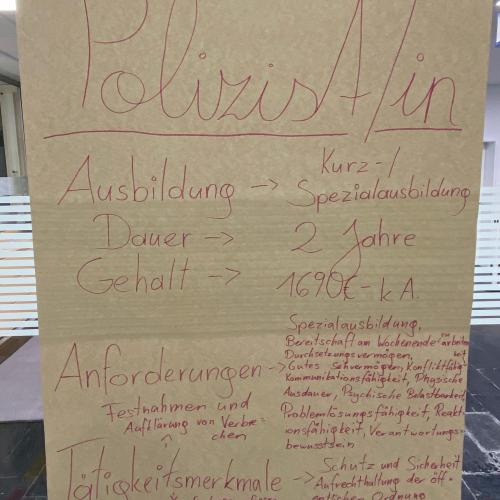 Polizist/in
Kurz-/
Ausbildung -> Spezialausbildung
Dauer -> 2 Jahre
Gehalt -> 1690€-k.A.
Spezialausbildung,
Bereitschaft am Wochenende zu arbeiten
Durchsetzungsvermögen,
Anforderungen -> Gutes Sehvermögen, Konfliktfähigkeit
Kommunikationsfähigkeit, Physische
Ausdauer, Psychische Belastbarkeit
Problemlösungsfähigkeit, Reakti-
onsfähigkeit, Verantwortungs-
bewusstsein
Festnahmen und
Aufklärung von Verbre-
chen
Tätigkeitsmerkmale -> Schutz und Sicherheit
Aufrechthaltung der öff-
entlichen Ordnung